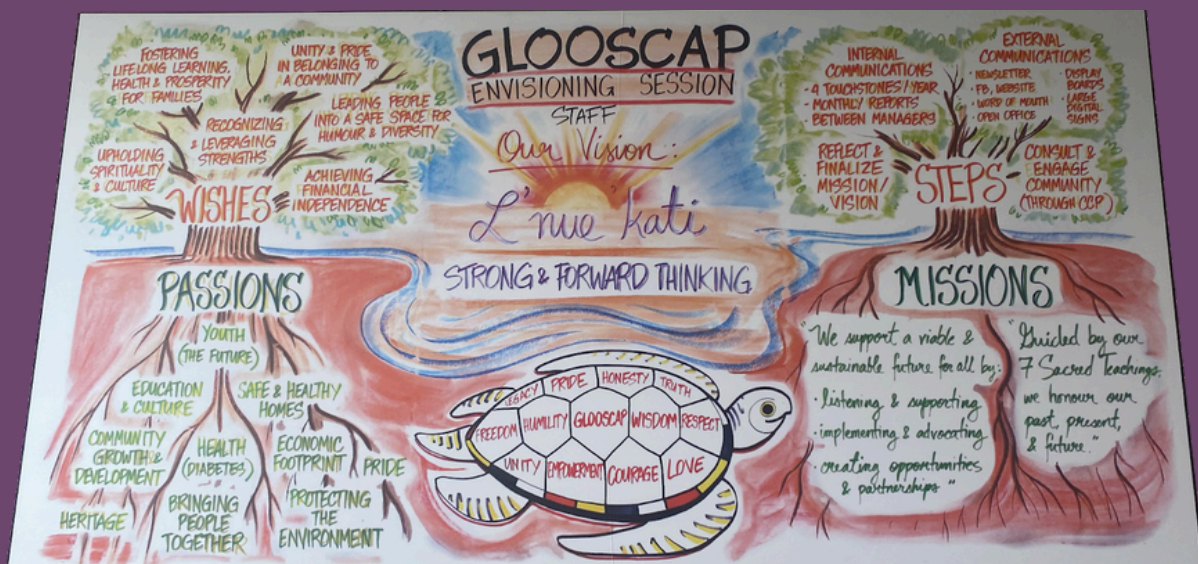 GLOOSCAP
ENVISIONING SESSION
STAFF
Our Vision:
L'nue kati
STRONG & FORWARD THINKING
FOSTERING
LIFELONG LEARNING,
HEALTH & PROSPERITY
FOR FAMILIES
UNITY & PRIDE
IN BELONGING TO
A COMMUNITY
RECOGNIZING
& LEVERAGING
STRENGTHS
LEADING PEOPLE
INTO A SAFE SPACE FOR
HUMOUR & DIVERSITY
UPHOLDING
SPIRITUALITY
& CULTURE
ACHIEVING
FINANCIAL
INDEPENDENCE
WISHES
PASSIONS
YOUTH
(THE FUTURE)
EDUCATION
& CULTURE
SAFE & HEALTHY
HOMES
COMMUNITY
GROWTH &
DEVELOPMENT
HEALTH
(DIABETES)
ECONOMIC
FOOTPRINT
PRIDE
HERITAGE
BRINGING
PEOPLE
TOGETHER
PROTECTING
THE
ENVIRONMENT
LEGACY PRIDE HONESTY TRUTH
FREEDOM HUMILITY GLOOSCAP WISDOM RESPECT
UNITY EMPOWERMENT COURAGE LOVE
INTERNAL
COMMUNICATIONS
• 4 TOUCHSTONES/YEAR
• MONTHLY REPORTS
• BETWEEN MANAGERS
EXTERNAL
COMMUNICATIONS
• NEWSLETTER
• FB, WEBSITE
• WORD OF MOUTH
• OPEN OFFICE
• DISPLAY
BOARDS
• LARGE
DIGITAL
SIGNS
REFLECT &
FINALIZE
MISSION/
VISION
CONSULT &
ENGAGE
COMMUNITY
(THROUGH CCP)
STEPS
MISSIONS
"We support a viable &
sustainable future for all by:
• listening & supporting
• implementing & advocating
• creating opportunities
& partnerships"
"Guided by our
7 Sacred Teachings,
we honour our
past, present,
& future."